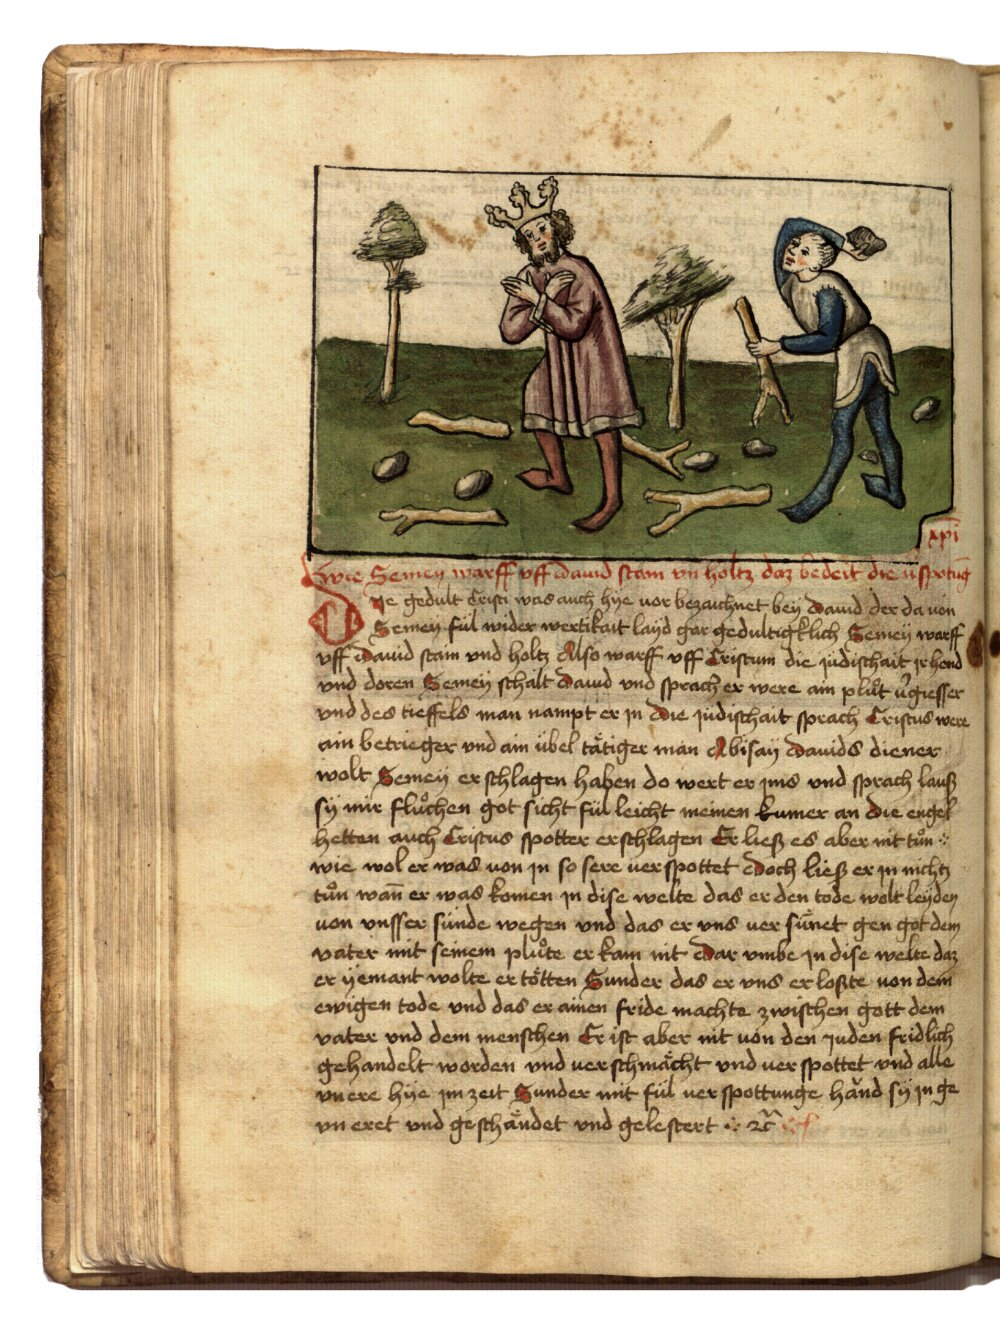 xp̄i
Wie Semey warff vff dauid stain vn̄ holtz daz bedeit die
Die gedult Cristi was auch hye vor bezaichnet bey Dauid der da von
Semey fúl wider wertikait layd gar gedultigklich Semey warff
vff Dauid stain vnd holtz Also warff vff Cristum die júdischait ir hend
vnd doren Semey schalt Dauid vnd sprach er were ain plůt giesser
vnd des tieffels man nampt er in Die júdischait sprach Cristus were
ain betrieger vnd ain úbel tätiger man Abisay Dauids diener
wolt Semey erschlagen haben do wert er ims vnd sprach lausz
sy mir flůchen got sicht fúl leicht meinen kumer an Die engel
hetten auch Cristus spotter erschlagen Er liesz es aber nit tůn
wie wol er was von in so sere verspottet Doch liesz er in nichtz
tůn wan̄ er was komen in dise welte das er den tode wolt leyden
von vnsser súnde wegen vnd das er vns ver súnet gen got dem
vater mit seinem plůte er kam nit Dar vmbe in dise welte daz
er yemant wolte er tötten Sunder das er vns er loszte von dem
ewigen tode vnd das er ainen fride machte zwischen gott dem
vater vnd dem menschen Er ist aber nit von den juden fridlich
gehandelt worden vnd verschmächt vnd verspottet vnd alle
vnere hye im zeit Sunder mit fúl verspottunge händ sy in ge
vn eret vnd geschändet vnd gelestert